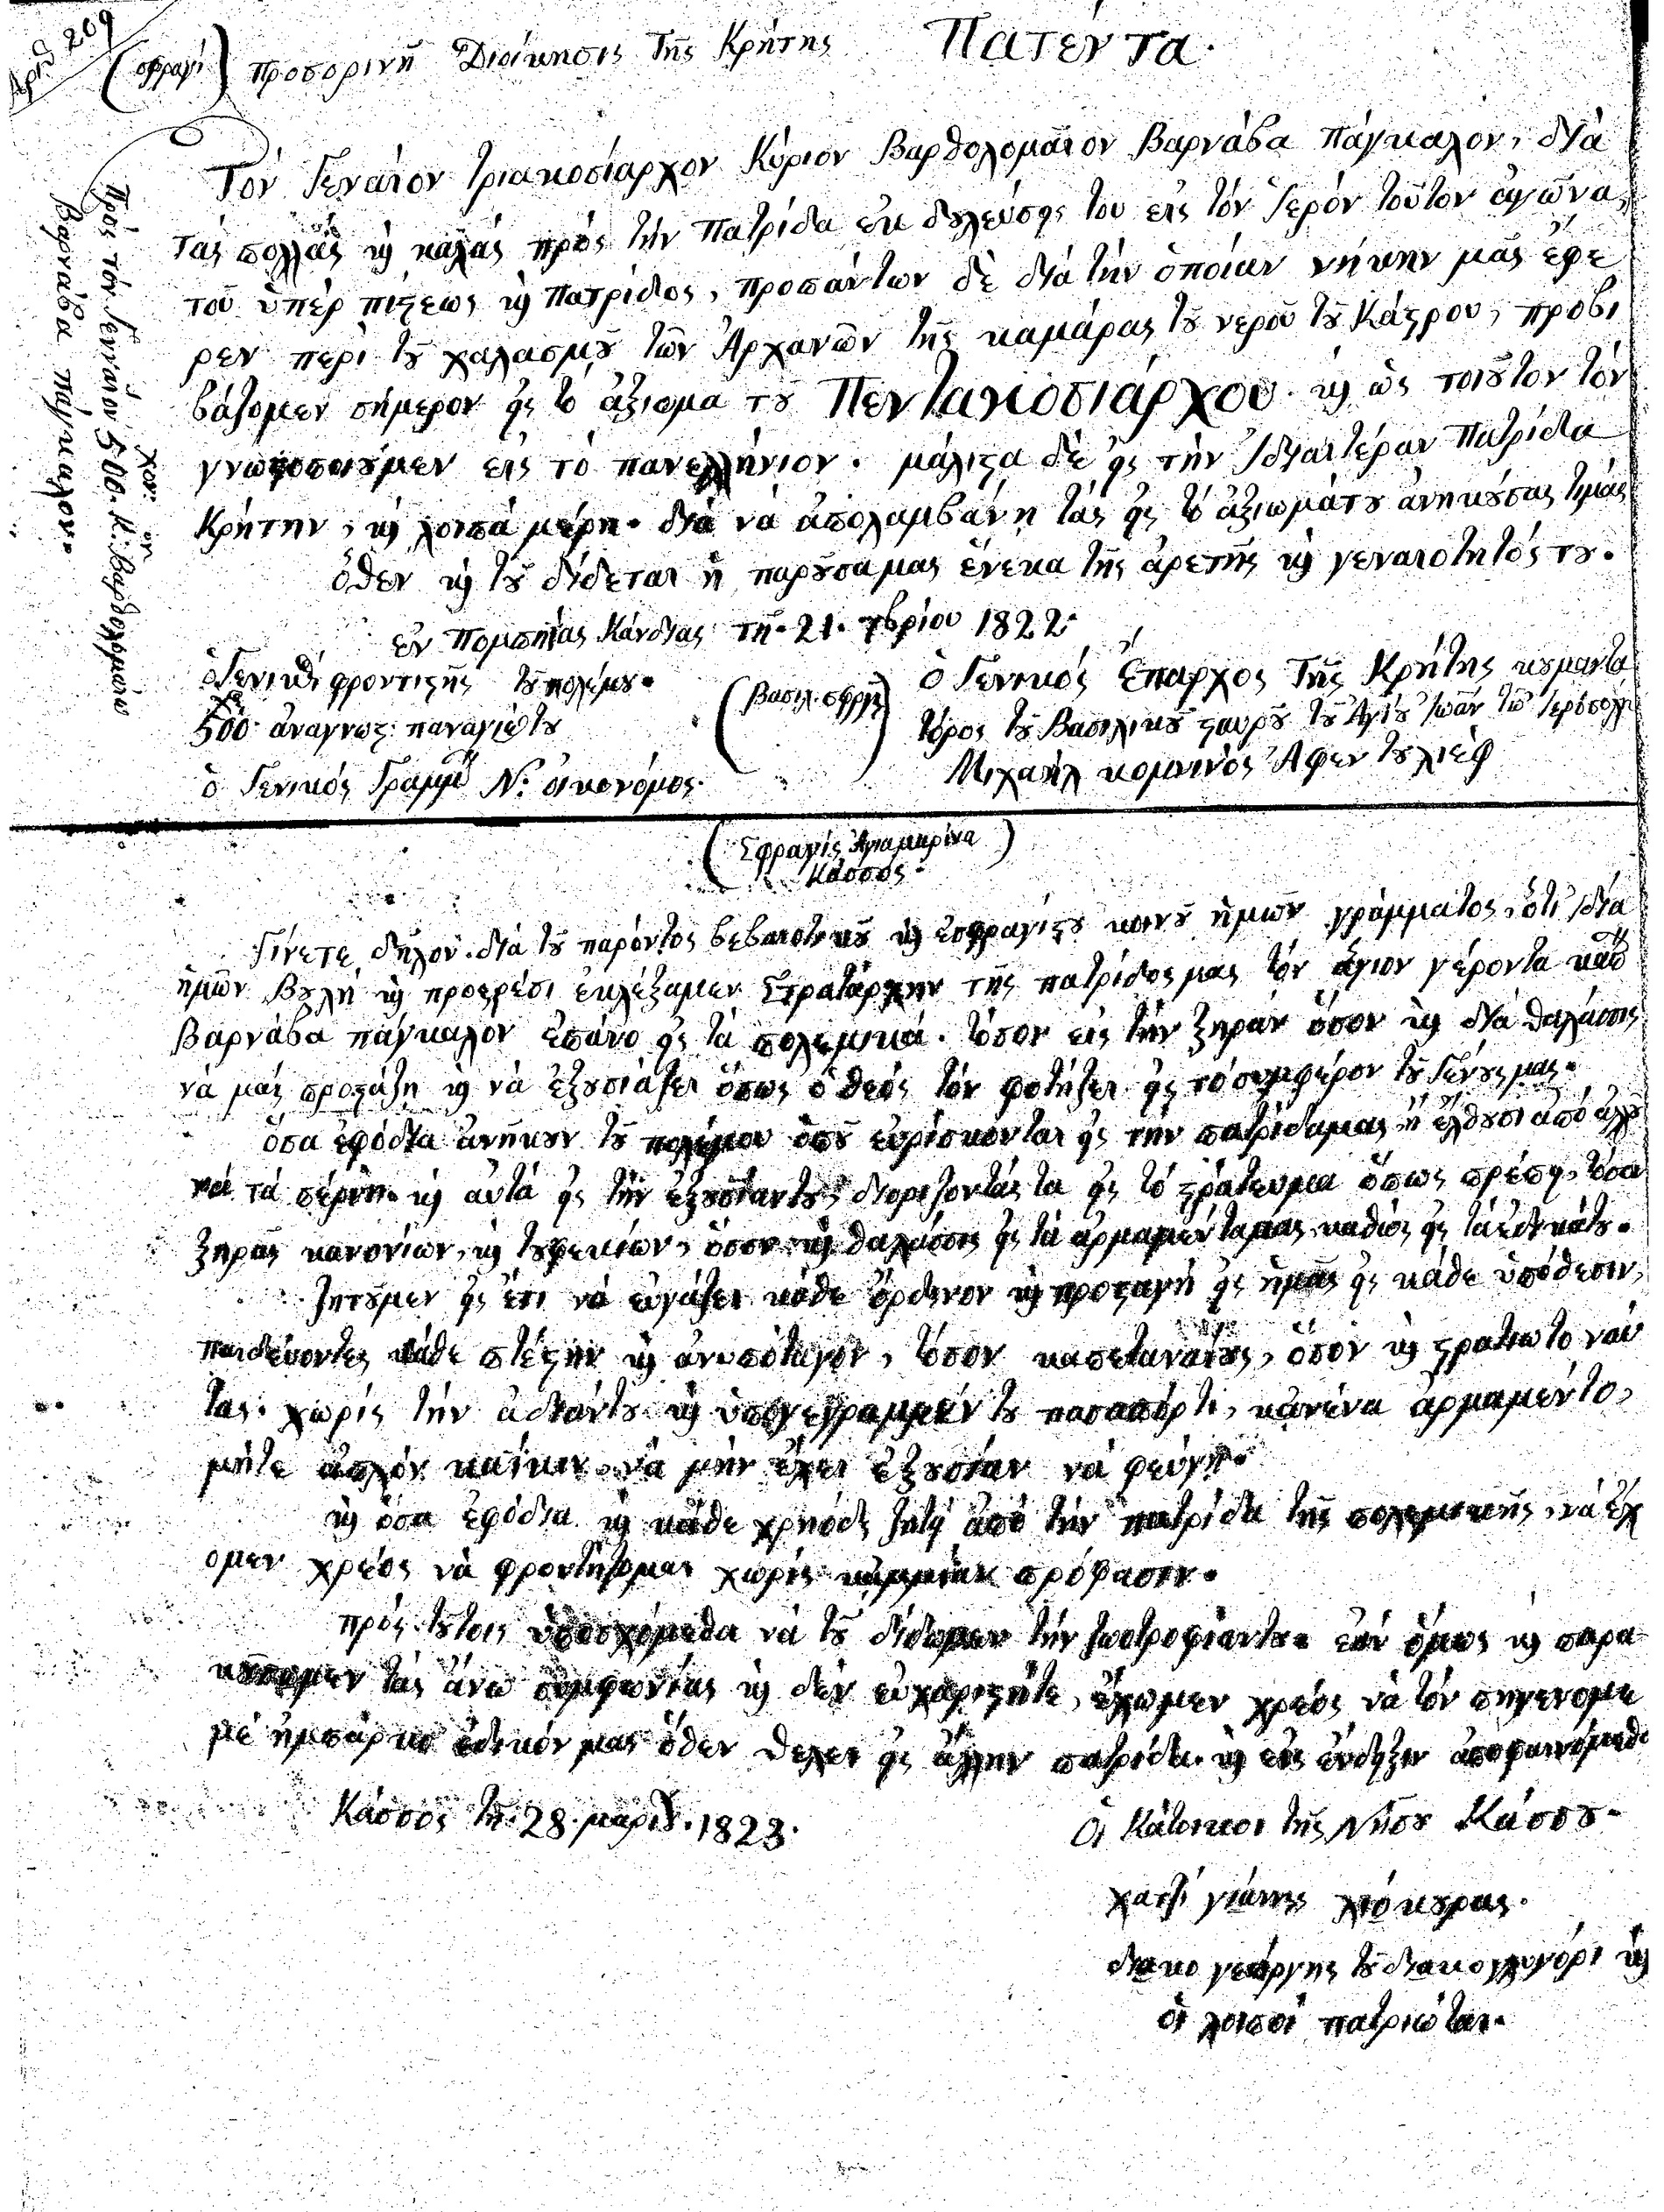 Αριθ 209
(σφραγί) Προσορινῆ Διοίκησις τῆς Κρήτης Πατέντα.
Τόν Γενάτον τριακοσίαρχον Κύριον Βαρθολομαῖον Βαρνάβα πάγκαλον, δυά
τάς πολλάς καὶ καλάς πρός τήν Πατρίδα ἐκ δουλεύσης του εἰς τόν Ἱερόν τοῦτον ἀγῶνα,
τοῦ ὑπέρ πίστεως καὶ Πατρίδος, προπάντων δὲ δυά τήν ὁποίαν νήκην μᾶς ἔφε
ρεν περὶ τοῦ χαλασμοῦ τῶν Ἀρχανῶν τῆς καμάρας τοῦ νεροῦ τοῦ Κάστρου, προβι
βάζομεν σήμερον εἰς τό ἀξίωμα του Πεντακοσιάρχου. καὶ ὡς τοιοῦτον τόν
γνωστοποιοῦμεν εἰς τό πανελλήνιον. μάλιστα δέ εἰς τήν Ἰδυαιτέραν Πατρίδα
Κρήτην, καὶ λοιπά μέρη. δυά νά ἀπολαμβάνη τάς εἰς τό ἀξιωμάτου ἀνηκούσας τιμάς
ὅθεν καὶ τοῦ δύδεται ἡ παροῦσα μας ἕνεκα τῆς ἀρετῆς καὶ γεναιοτητός του.
ἐν Πομπηίας Κάνδιας τῇ. 21. 7βρίου 1822.
ὁ Γενικός φροντιστῆς τοῦ πολέμου.
χος
500. ἀναγνωσ: παναγιώτου
ὁ Γενικός Γραμμ Ν. οἰκονόμος.
(Βασιλ. σφργς)
ὁ Γενικός Ἔπαρχος τῆς Κρήτης κουμαντα
τόρος τοῦ Βασιλικοῦ σταυροῦ τοῦ Ἁγίου Ἰωάν τῶ Ἱερόσολυ
Μιχαήλ κομνινός Ἀφεντουλιέφ
Πρός τόν Γενναῖον 500.χον Κ.ον Βαρθολομαῖον
Βαρναβα Πάγκαλον.
(Σφραγίς Ἁγιαμαρίνα
Κάσσος.)
Γίνετε δῆλον. δυά τοῦ παρόντος βεβαιοτικοῦ καὶ ἐσφραγίστου κοινοῦ ἡμῶν γράμματος, ὅτι ἰδυά
ἡμῶν Βουλή καὶ προερέσι ἐκλέξαμεν Στρατάρχην τῆς πατρίδος μας τόν ἅγιον γέροντα καπ
Βαρνάβα πάγκαλον ἐπάνο εἰς τά πολεμικά. τόσον εἰς τήν ξηράν ὅσον καὶ δυά θαλάσσις
νά μάς προστάζη καὶ νά ἐξουσιάζει ὅπως ὁ θεός τόν φοτήζει εἰς τό συμφέρον τοῦ Γένους μας.
ὅσα ἐφόδια ἀνῆκουν τοῦ πολέμου ὁποῦ εὑρίσκονται εἰς τήν πατρίδαμας ἤ ἔλθουσι ἀπό ἀλοῦ
νά τά πέρνη. καὶ αὐτά εἰς τήν ἐξουσίαντου, διορίζοντάς τα εἰς τό στράτευμα ὅπως πρέπη. τόσο
ξηρᾶς κανονίων, καὶ τουφεκίων, ὅσον καὶ θαλάσσις εἰς τά ἀρμαμένταμας, καθώς εἰς τά ἐδικάτου.
Ζητοῦμεν εἰς ἔτι νά εὐγάζει κάθε ὄρδινον καὶ προσταγή εἰς ἡμᾶς εἰς κάθε ὑπόθεσιν,
παιδεύοντες κάθε πτέστην καὶ ἀνυπόταγον, τόσον καπετανάίους, ὅσον καὶ στρατιωτο ναύ
τας. χωρίς τήν ἀδιάντου καὶ ὑπογεγραμμέν του πασαπόρτι, κἀνένα ἀρμαμέντο,
μήτε ἁπλόν καΐκιν νά μήν ἔχει ἐξουσίαν νά φεύγη.
καὶ ὅσα ἐφόδια καὶ κάθε χρηόδες ζητῇ ἀπό τήν πατρίδα τῆς πολεμικῆς, νά ἔχ
ομεν χρέος νά φροντήζομαι χωρίς καμμίαν πρόφασιν.
πρός τούτοις ὑποσχόμεθα νά τοῦ δίδομεν τήν ζωοτροφίαντου. ἐάν ὅμως καὶ παρα
κούσομεν τάς ἄνω συμφωνίας καὶ δέν εὐχαριστῆτε, ἔχωμεν χρέος νά τόν πηγενομε
μέ ἠμπάρκο ἐδικόν μας ὅθεν θελει εἰς ἄλλην πατρίδα. καὶ εἰς ἔνδηξιν ἀποφαινόμεθα
Κάσσος τῇ. 28. μαρίου. 1823.
Οἱ Κάτοικοι τῆς Νήσου Κάσου.
χατζί γιάννης χιόκουρας.
διακο γεώργης τοῦ διακογληγόρι καὶ
οἱ λοιποί πατριῶται.